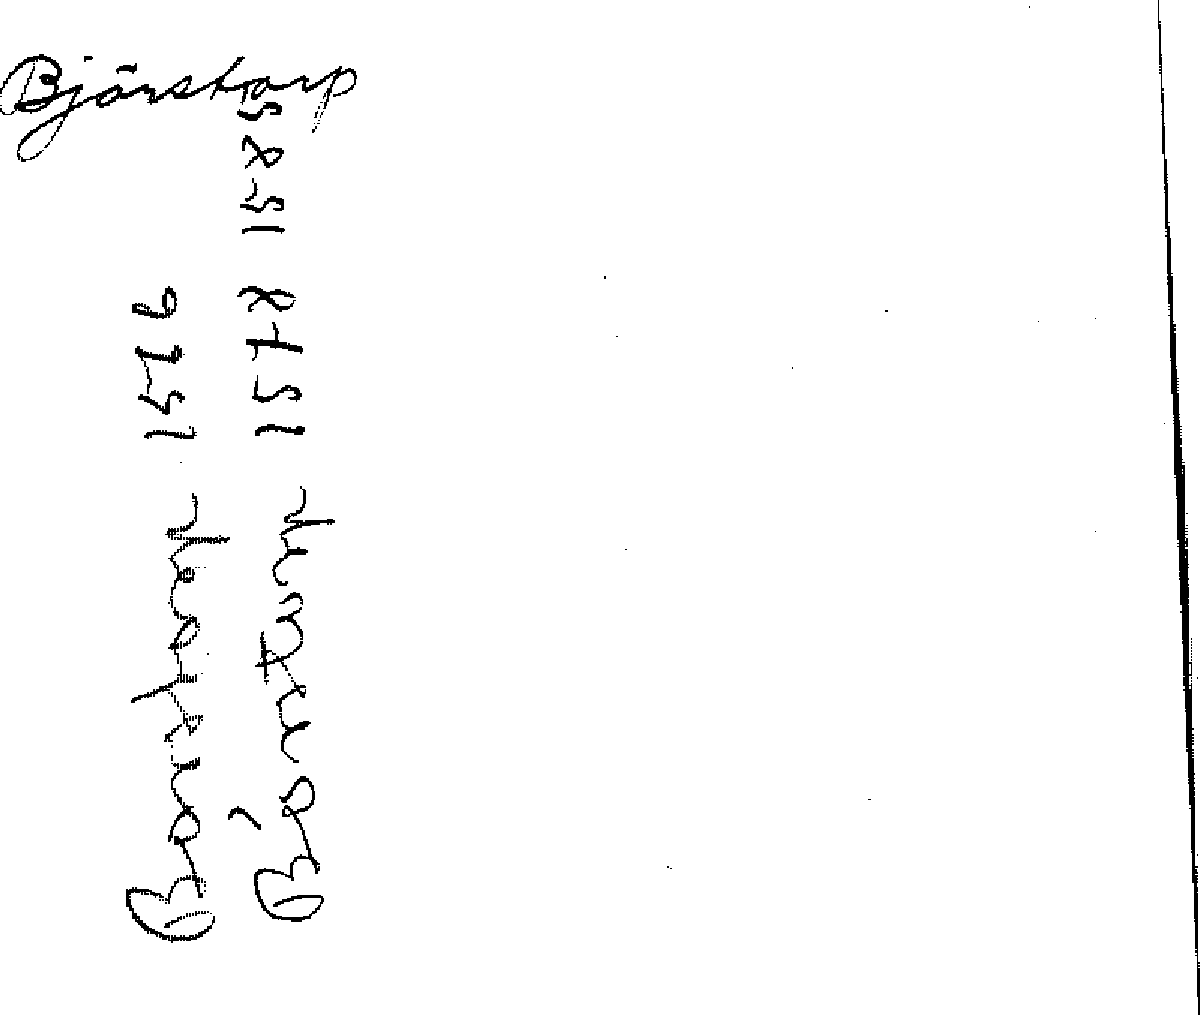 Björstorp
Borstorp 1576
Börsturp 1578 1585